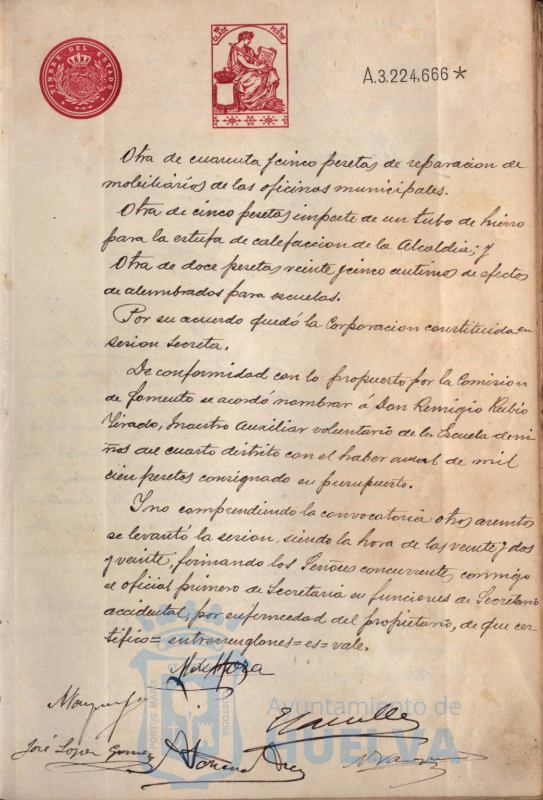 TIMBRE DEL ESTADO
CLASE
A.3.224,666*
Otra de cuarenta y cinco pesetas de reparacion de
mobiliarios de las oficinas municipales.
Otra de cinco pesetas importe de un tubo de hierro
para la estufa de calefaccion de la Alcaldia; y
Otra de doce pesetas veinte y cinco centimos de efectos
de alumbrados para escuelas.
Por su acuerdo quedó la Corporacion constituida en
sesion secreta.
De conformidad con lo propuesto por la Comision
de fomento se acordó nombrar á Don Remigio Rubio
Tirado, Maestro Auxiliar voluntario de la Escuela de ni-
ños del cuarto distrito con el haber anual de mil
cien pesetas consignado en presupuesto.
Y no comprendiendo la convocatoria otros asuntos
se levantó la sesion, siendo la hora de las veinte y dos
y veinte, firmando los Señores concurrentes, conmigo
el oficial primero de Secretaria en funciones de Secretario
accidental, por enfermedad del propietario, de que cer-
tifico = entrerrenglones = es = vale.
M. de Mora
José Lopez Gomez
PORTUS MARIS
CUSTODIA
Ayuntamiento de
HUELVA